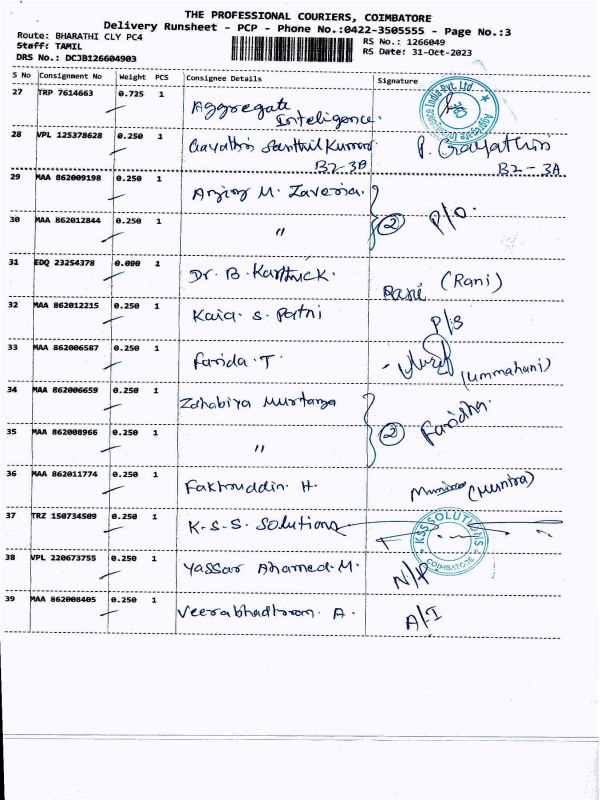 THE PROFESSIONAL COURIERS, COIMBATORE
Delivery Runsheet - PCP - Phone No.:0422-3505555 - Page No.:3
Route: BHARATHI CLY PC4
Staff: TAMIL
DRS No.: DCJB126604903
RS No.: 1266049
RS Date: 31-Oct-2023
S No Consignment No Weight PCS Consignee Details Signature
27 TRP 7614663 0.725 1 Aggregate Inteligence.
28 VPL 125378628 0.250 1 Gayathri Senthil Kumar B2-3A P. Gayathiri B2-3A
29 MAA 862009198 0.250 1 M. Zaveria.
30 MAA 862012844 0.250 1 " 2 P/O.
31 EDQ 23254378 0.090 1 Dr. B. Karthick. Rani (Rani)
32 MAA 862012215 0.250 1 Kaia. S. Patni P/S
33 MAA 862006587 0.250 1 Farida. T. (ummahani)
34 MAA 862006659 0.250 1 Zahabiya Murtaza
35 MAA 862008966 0.250 1 " 2 Faridha.
36 MAA 862011774 0.250 1 Fakhruddin. H. (Munira)
37 TRZ 150734509 0.250 1 K-S-S- Solutions KSS SOLUTIONS COIMBATORE
38 VPL 220673755 0.250 1 Yassar Ahamed. M. N/P.
39 MAA 862008405 0.250 1 Veerabhadhran. A. A/I